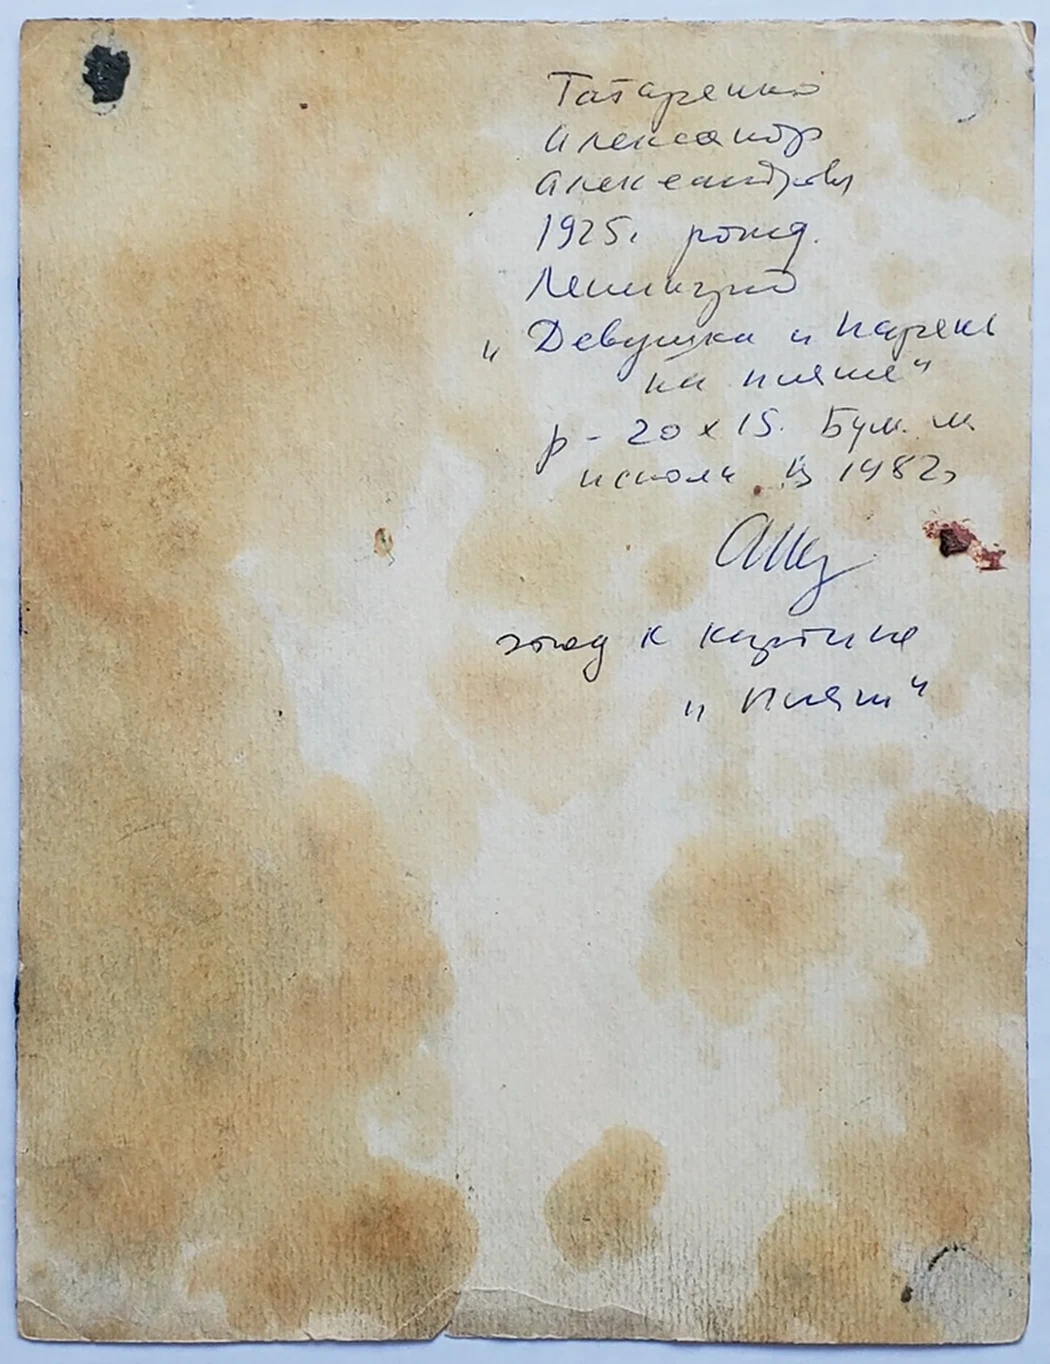 Татаренко
Александр
Александрович
1925г рожд.
Ленинград
"Девушка и парень
на пляже"
р - 20 х 15. Бум. м
исполн в 1982г
этюд к картине
"Пляж"